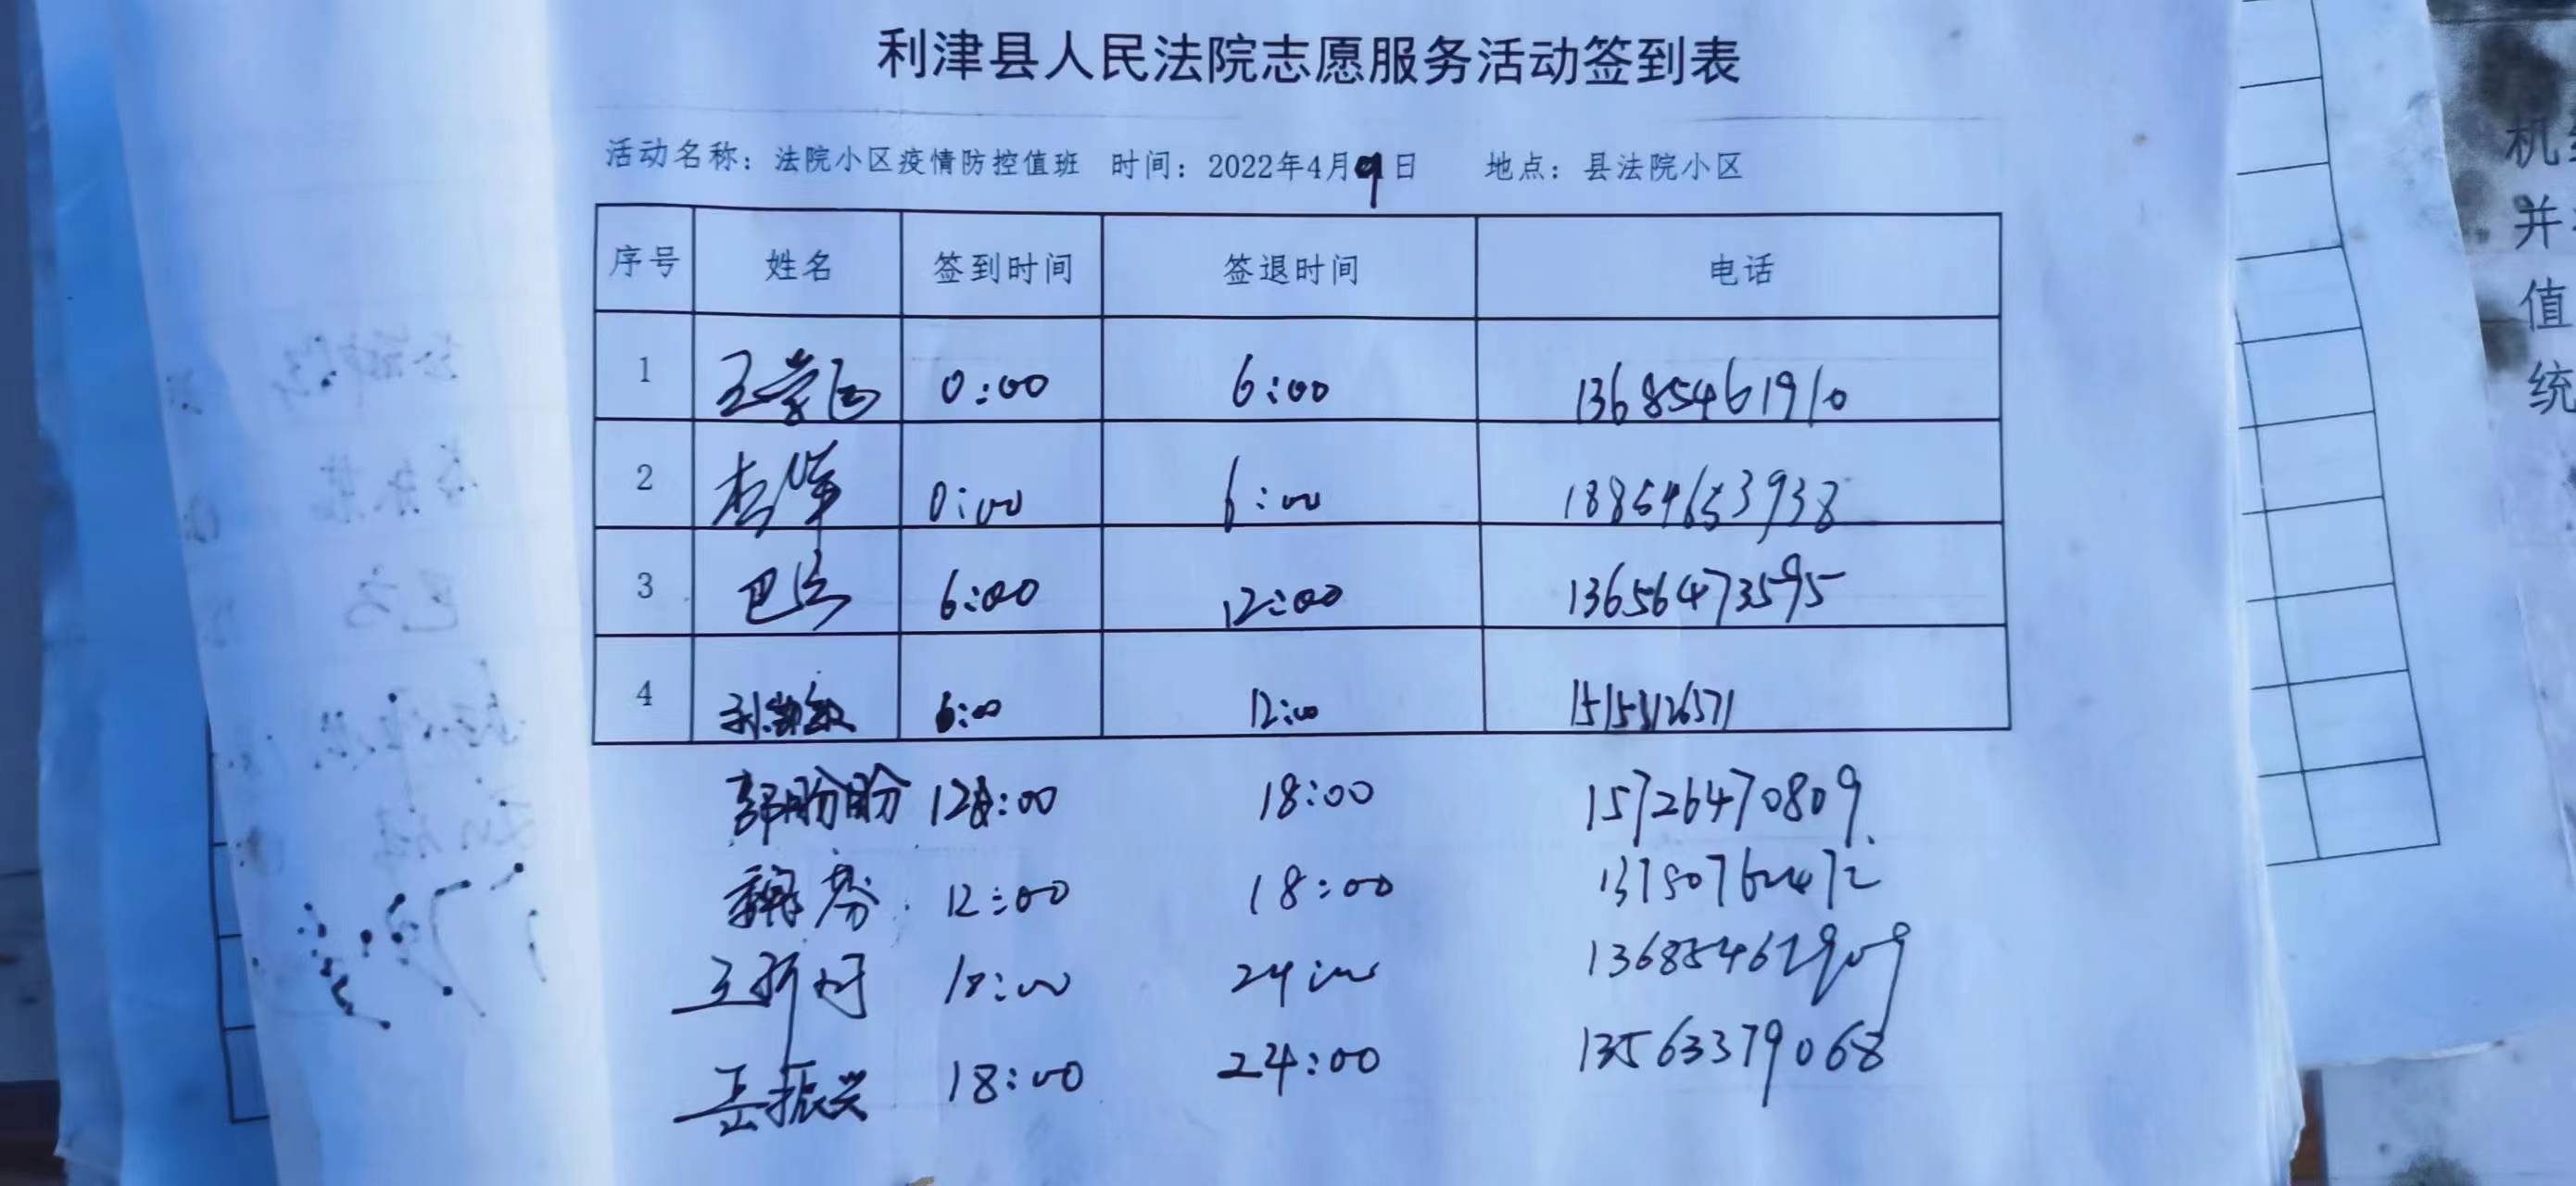 利津县人民法院志愿服务活动签到表
活动名称：法院小区疫情防控值班 时间：2022年4月9日 地点：县法院小区
序号 姓名 签到时间 签退时间 电话
1 0:00 6:00 13685461910
2 0:00 6:00 18854653938
3 6:00 12:00 13656473595
4 6:00 12:00
郭盼盼 12:00 18:00 15726470809
魏芬 12:00 18:00
18:00 24:00
岳振兴 18:00 24:00 13563379068
机
并
值
统